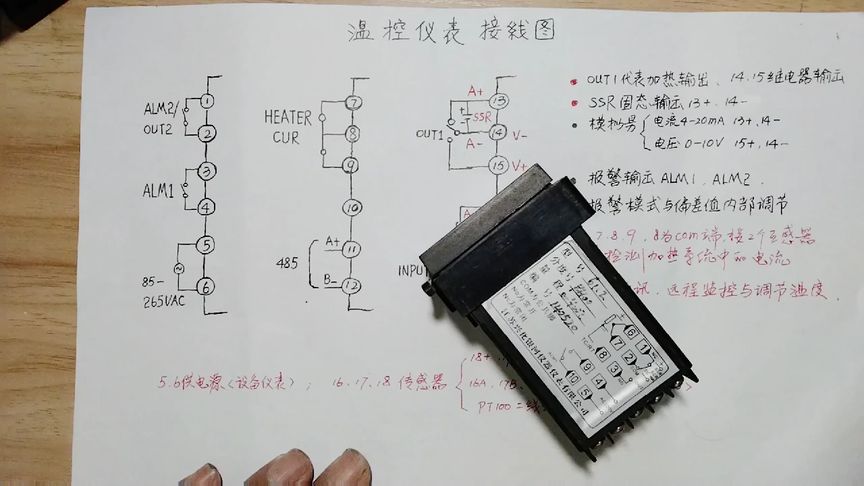 温控仪表 接线图
ALM2/
OUT2
1
2
ALM1
3
4
85-
265VAC
5
6
HEATER
CUR
7
8
9
10
485
A+
11
B-
12
A+
13
SSR
OUT1
14
V-
A-
15
V+
INPUT
OUT1代表加热输出、14.15继电器输出
SSR固态输出13+、14-
模拟量
电流4-20mA 13+、14-
电压0-10V 15+、14-
报警输出ALM1、ALM2.
报警模式与偏差值内部调节
7.8.9、8为com端,接2个互感器
检测加热系统中的电流
讯、远程监控与调节温度.
5.6供电源(设备仪表);16.17.18传感器
18+
16A、17B
PT100二线
型号
分度号
量程
编号
COM为公共端
NO为常开
NC为常闭
江苏兴化银河仪器仪表有限公司
6 1
7 2
8 3
9 4
10 5